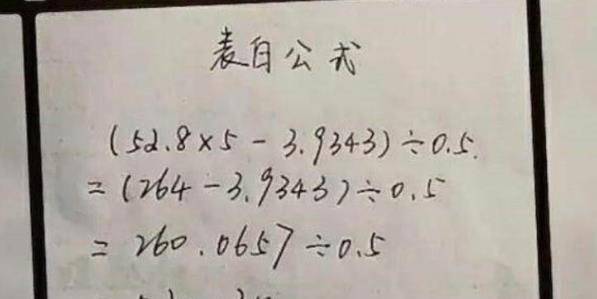 表白公式
(52.8×5-3.9343)÷0.5.
=(264-3.9343)÷0.5
=260.0657÷0.5